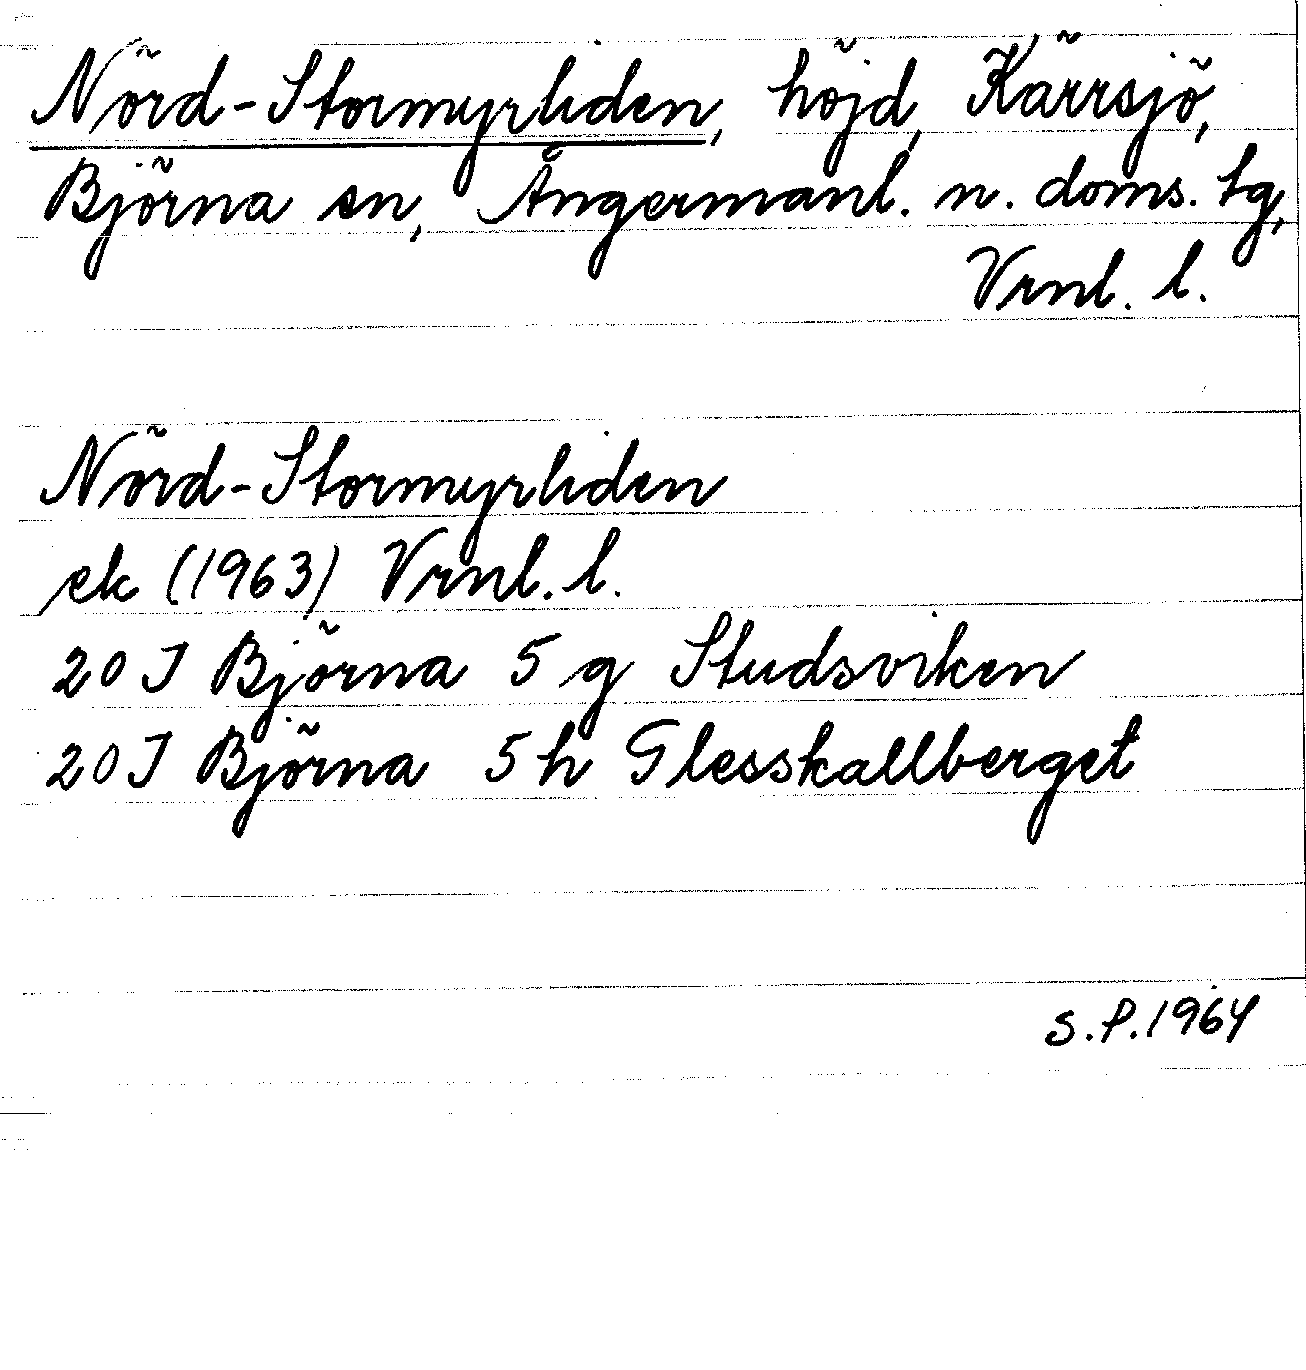 Nörd-Stormyrliden, höjd, Kärrsjö,
Björna sn, Ångermanl. n. doms. tg,
Vrnl. l.
Nörd-Stormyrliden
ek (1963) Vrnl. l.
20 J Björna 5 g Studsviken
20 J Björna 5 h Glesskallberget
S.P. 1964